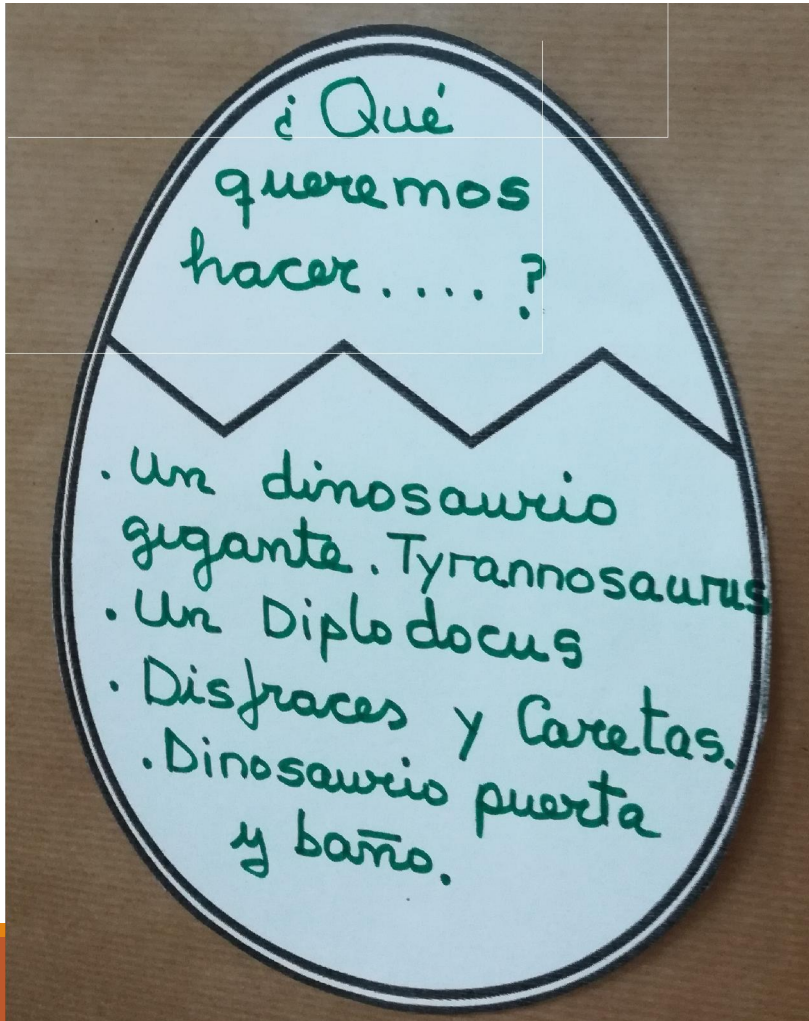 ¿Qué
queremos
hacer....?
. Un dinosaurio
gigante. Tyrannosaurus
. Un Diplodocus
. Disfraces y Caretas.
. Dinosaurio puerta
y baño.